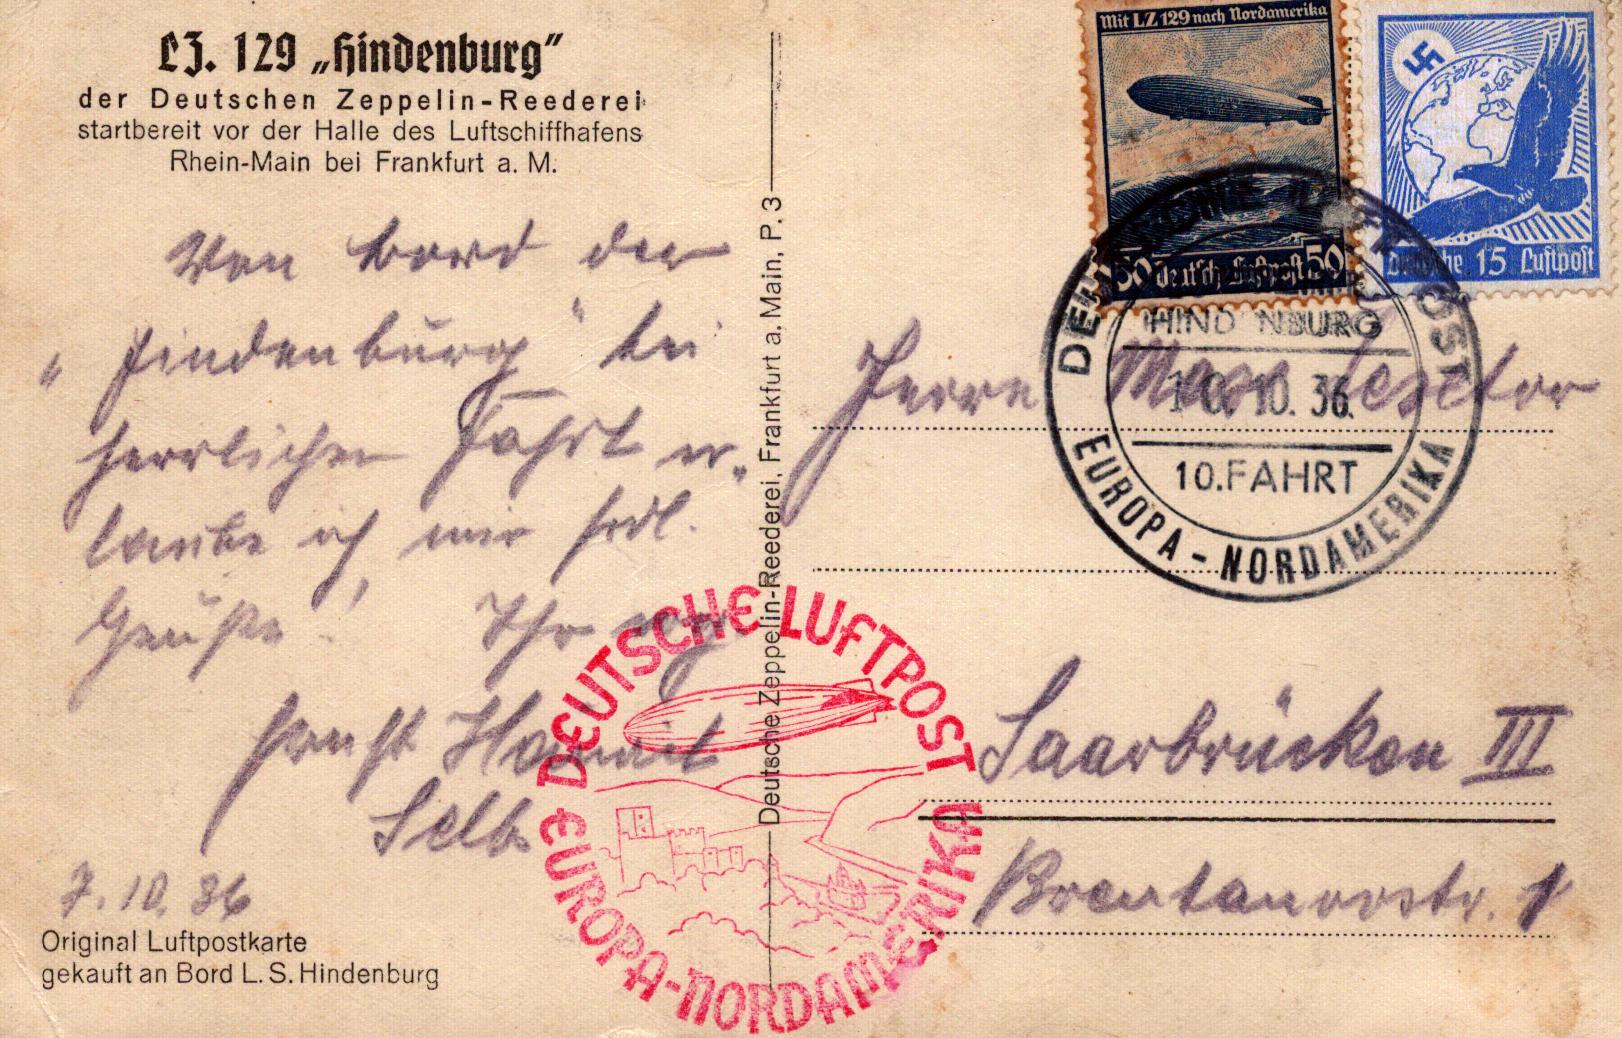 LZ. 129 „Hindenburg“
der Deutschen Zeppelin-Reederei
startbereit vor der Halle des Luftschiffhafens
Rhein-Main bei Frankfurt a. M.
Von Bord der
„Hindenburg“ bei
herrlicher Fahrt er-
laube ich mir frdl.
Grüße! Ihr
Ernst
Selb
7.10.36
Original Luftpostkarte
gekauft an Bord L. S. Hindenburg
Deutsche Zeppelin-Reederei, Frankfurt a. Main, P. 3
Mit LZ 129 nach Nordamerika
50 Deutsche Luftpost 50
Deutsche 15 Luftpost
DEUTSCHE LUFTPOST
HINDENBURG
10.10.36.
10.FAHRT
EUROPA-NORDAMERIKA
Herrn
Saarbrücken III
Brentanostr. 1
DEUTSCHE LUFTPOST
EUROPA-NORDAMERIKA